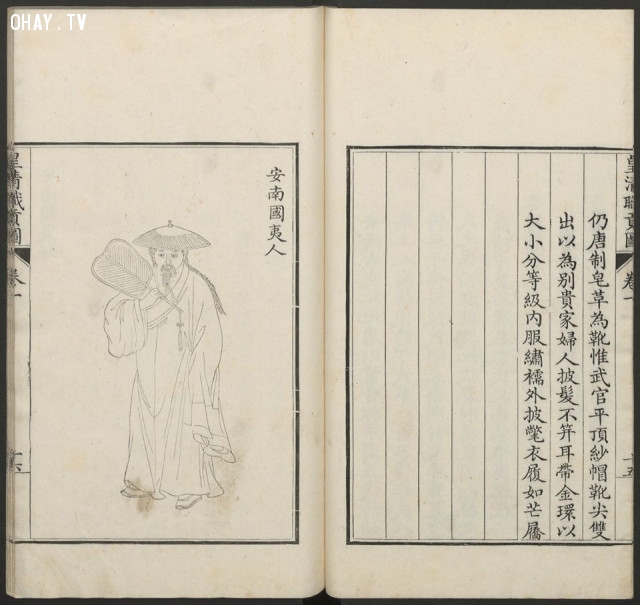 OHAY.TV
皇清職貢圖
卷一
十五
仍唐制皂革為靴惟武官平頂紗帽靴尖雙
出以為別貴家婦人披髮不笄耳帶金環以
大小分等級内服繡襦外披氅衣履如芒屩
安南國夷人
皇清職貢圖
卷一
十六